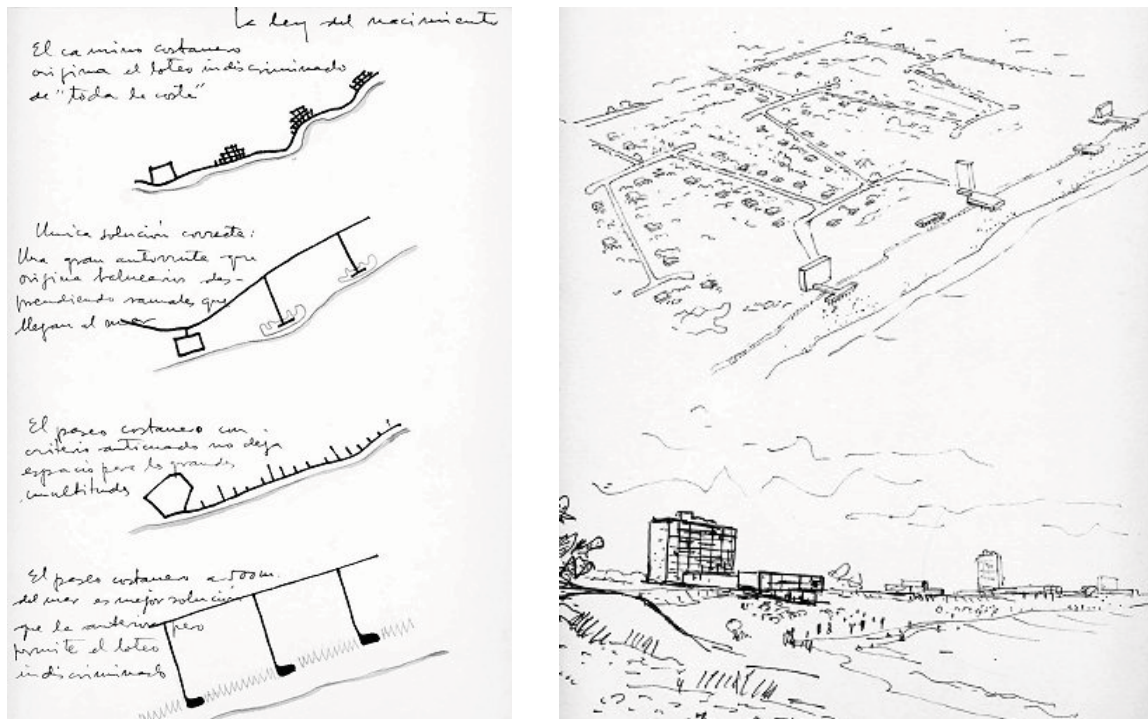 La ley del nacimiento
El camino costanero
origina el loteo indiscriminado
de "toda la costa"
Unica solución correcta:
Una gran autorruta que
origina balnearios des-
prendiendo ramales que
llegan al mar
El paseo costanero con
criterio anticuado no deja
espacio para las grandes
multitudes
El paseo costanero a 500 m.
del mar es mejor solución
que la anterior pero
permite el loteo
indiscriminado